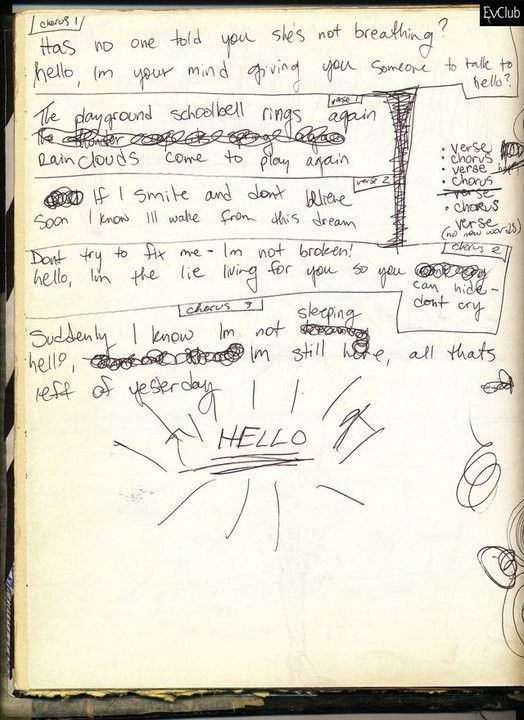 EvClub
chorus 1
Has no one told you she's not breathing?
hello, Im your mind giving you someone to talk to
hello?
verse 1
The playground schoolbell rings again
The
Rain clouds come to play again
verse 2
If I smile and dont believe
Soon I know Ill wake from this dream
• verse
• chorus
• verse
• chorus
verse
• chorus
verse
(no new words)
chorus 2
Dont try to fix me - Im not broken!
hello, Im the lie living for you so you
can hide -
dont cry
chorus 3
Suddenly I know Im not sleeping
hello, Im still here, all thats
left of yesterday
HELLO